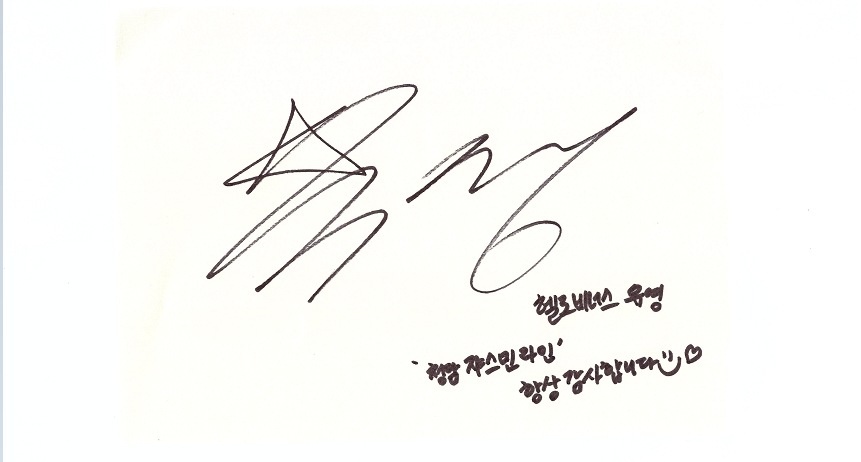 헬로비너스 유영
'청담 쟈스민라인'
항상 감사합니다